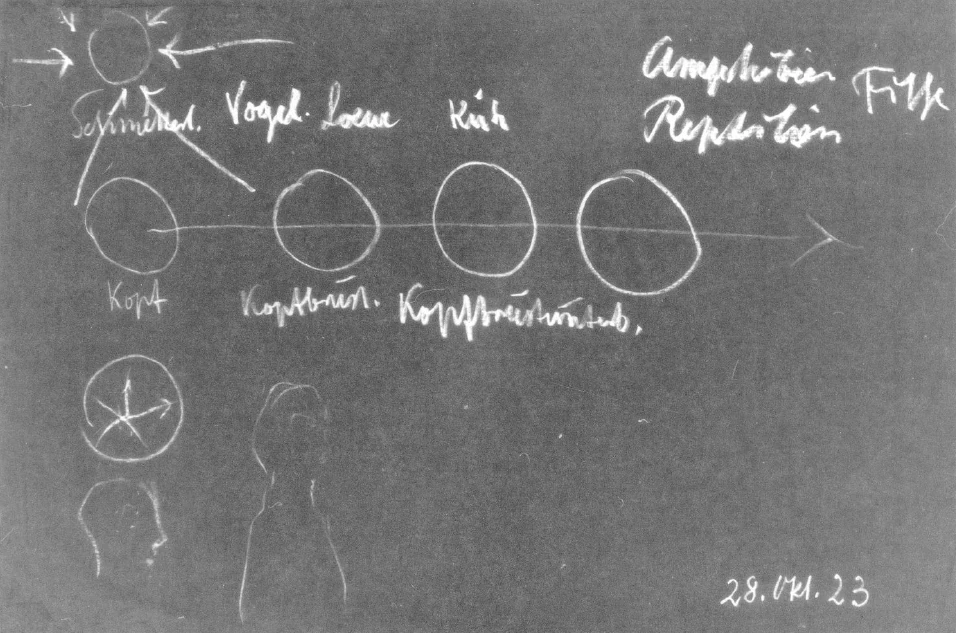 Schmetterl. Vogel. Loewe Kuh Amphibien Fische
Reptilien
Kopf Kopfbrust. Kopfbrustunterb.
28. Okt. 23